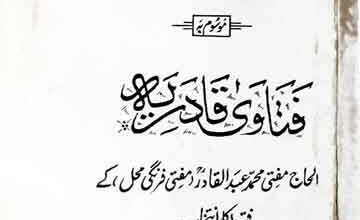 موسوم بہ
فتاویٰ قادریہ
الحاج مفتی محمد عبد القادرؒ (مفتی فرنگی محل) کے